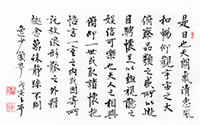 是日也天朗氣清惠風
和暢仰觀宇宙之大
俯察品類之盛所以遊
目騁懷足以極視聽之
娛信可樂也夫人之相與
俯仰一世或取諸懷抱
悟言一室之內或因寄所
託放浪形骸之外雖
趣舍萬殊靜躁不同